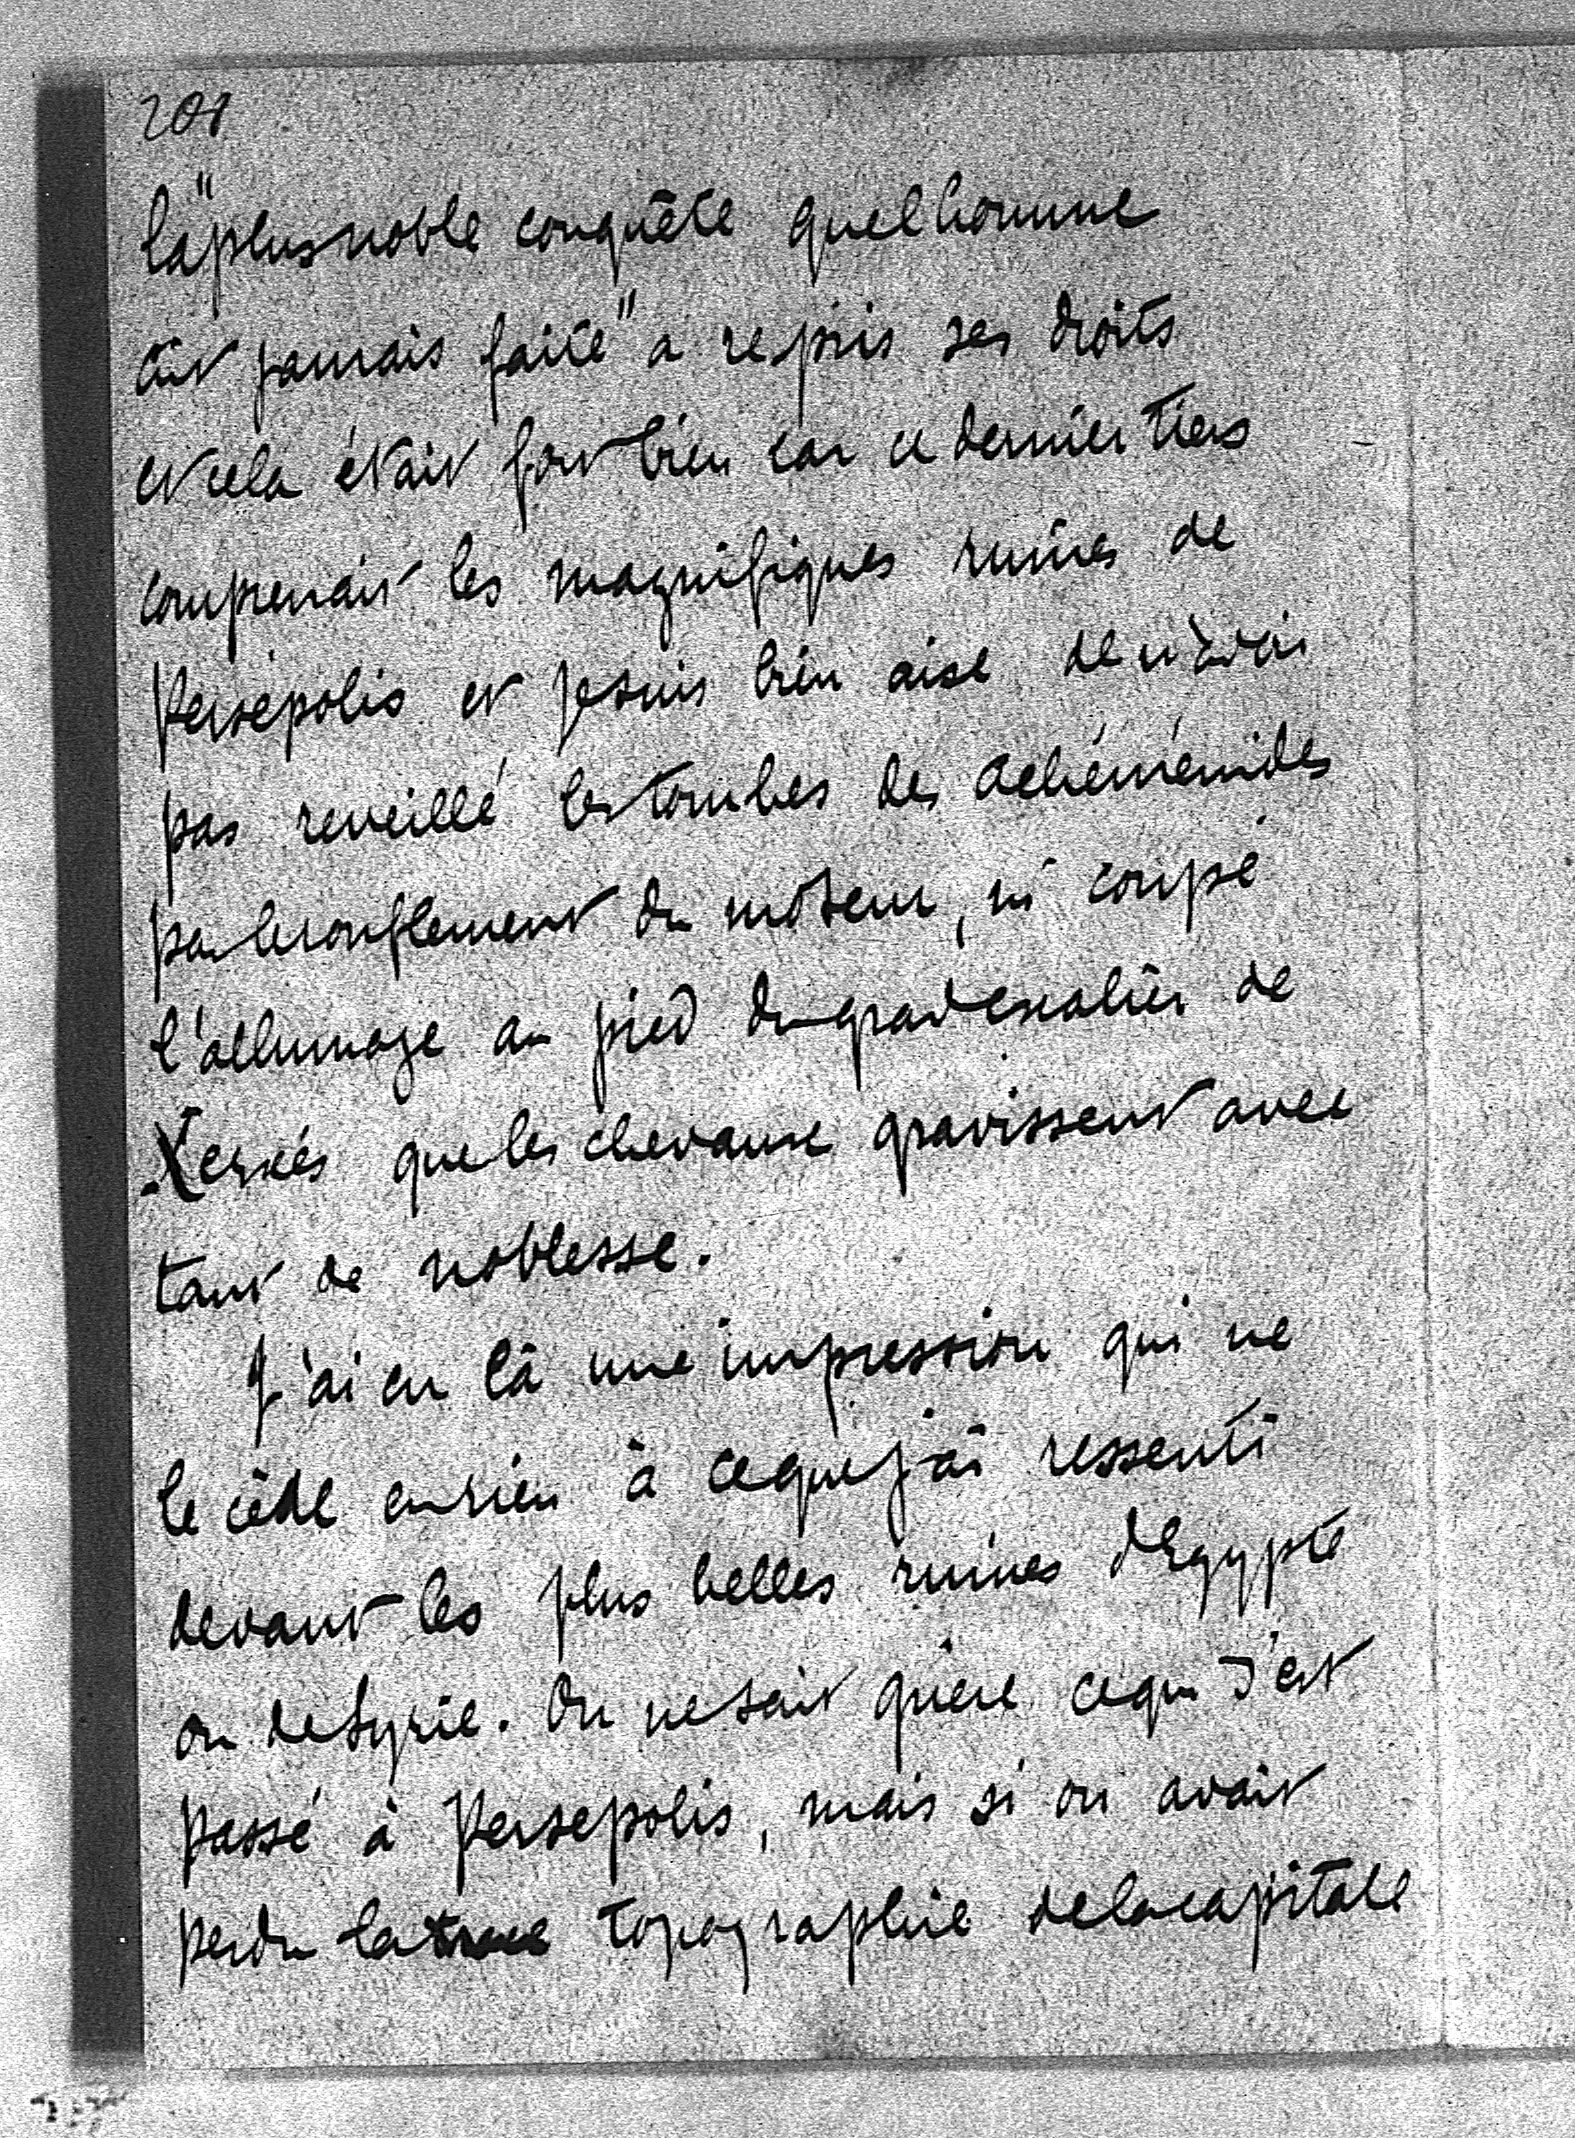 208
la "plus noble conquête que l homme
ait jamais faite" a repris ses droits
et cela était fort bien car ce dernier tiers
comprenait les magnifiques ruines de
Persépolis et je suis bien aise de n'avoir
pas reveillé les tombes des Achéménides
par le ronflement du moteur, ni coupé
l'allumage au pied du grand escalier de
Xerxés que les chevaux gravissent avec
tant de noblesse.
J'ai eu là une impression qui ne
le cède en rien à ce que j'ai ressenti
devant les plus belles ruines d'Egypte
ou de Syrie. On ne sait guère ce qui s'est
passé à Persepolis, mais si on avait
perdu la topographie de la capitale